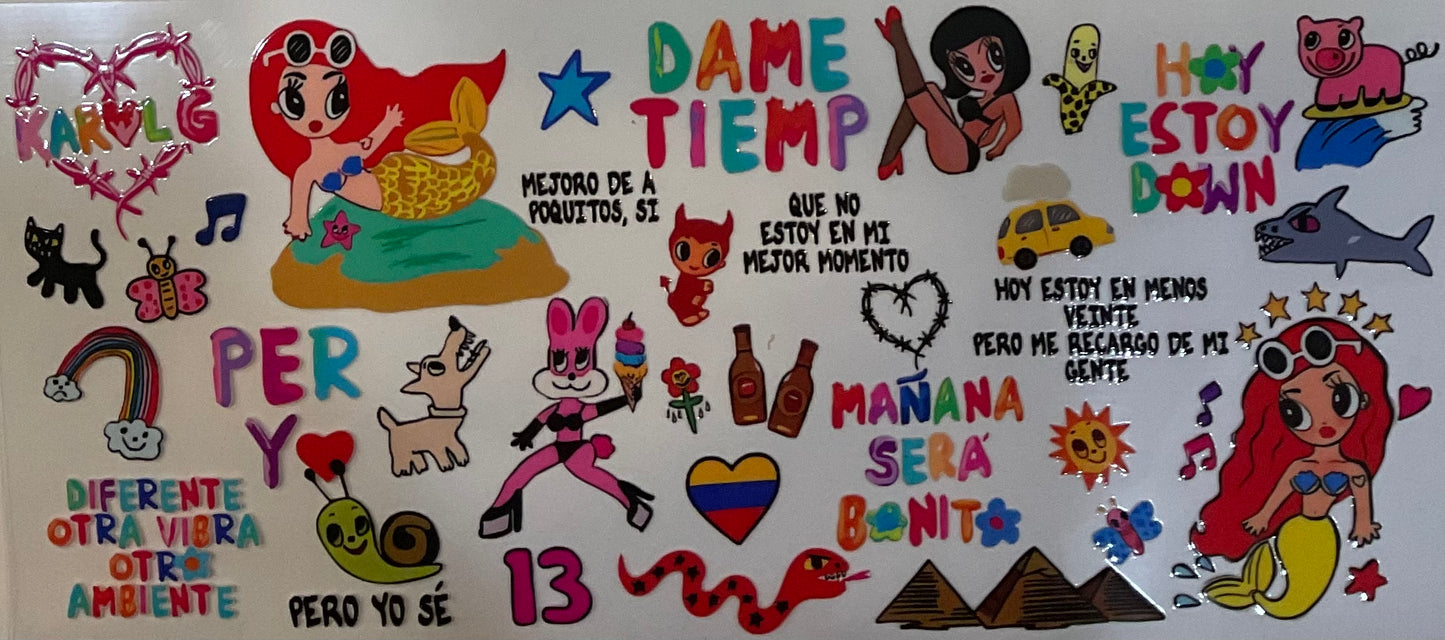 KAROL G
DAME
TIEMP
HOY
ESTOY
DOWN
MEJORO DE A
POQUITOS, SI
QUE NO
ESTOY EN MI
MEJOR MOMENTO
HOY ESTOY EN MENOS
VEINTE
PERO ME RECARGO DE MI
GENTE
PER
Y
MAÑANA
SERÁ
BONITO
DIFERENTE
OTRA VIBRA
OTRO
AMBIENTE
PERO YO SÉ
13